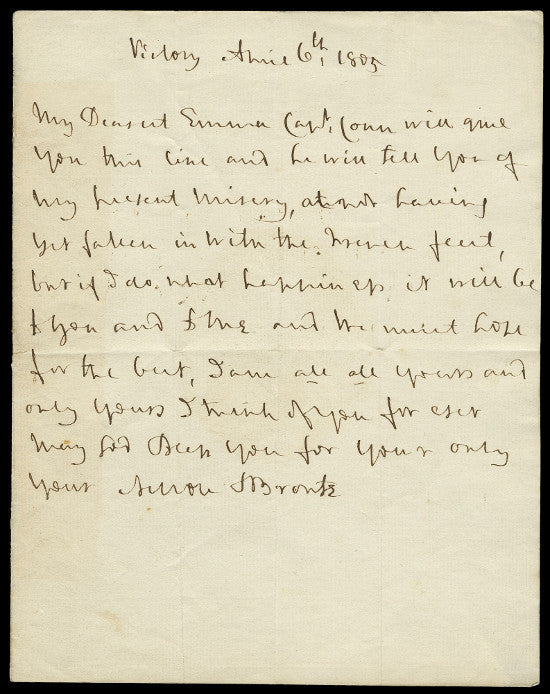 Victory April 6th, 1805
My Dearest Emma Capt. Conn will give
you this line and he will tell you of
my present misery, at not having
yet fallen in with the french fleet,
but if I do. what happiness it will be
to you and to me and we must hope
for the best, I am all all yours and
only yours I think of you for ever
may God Bless you for your only
your Nelson & Bronte